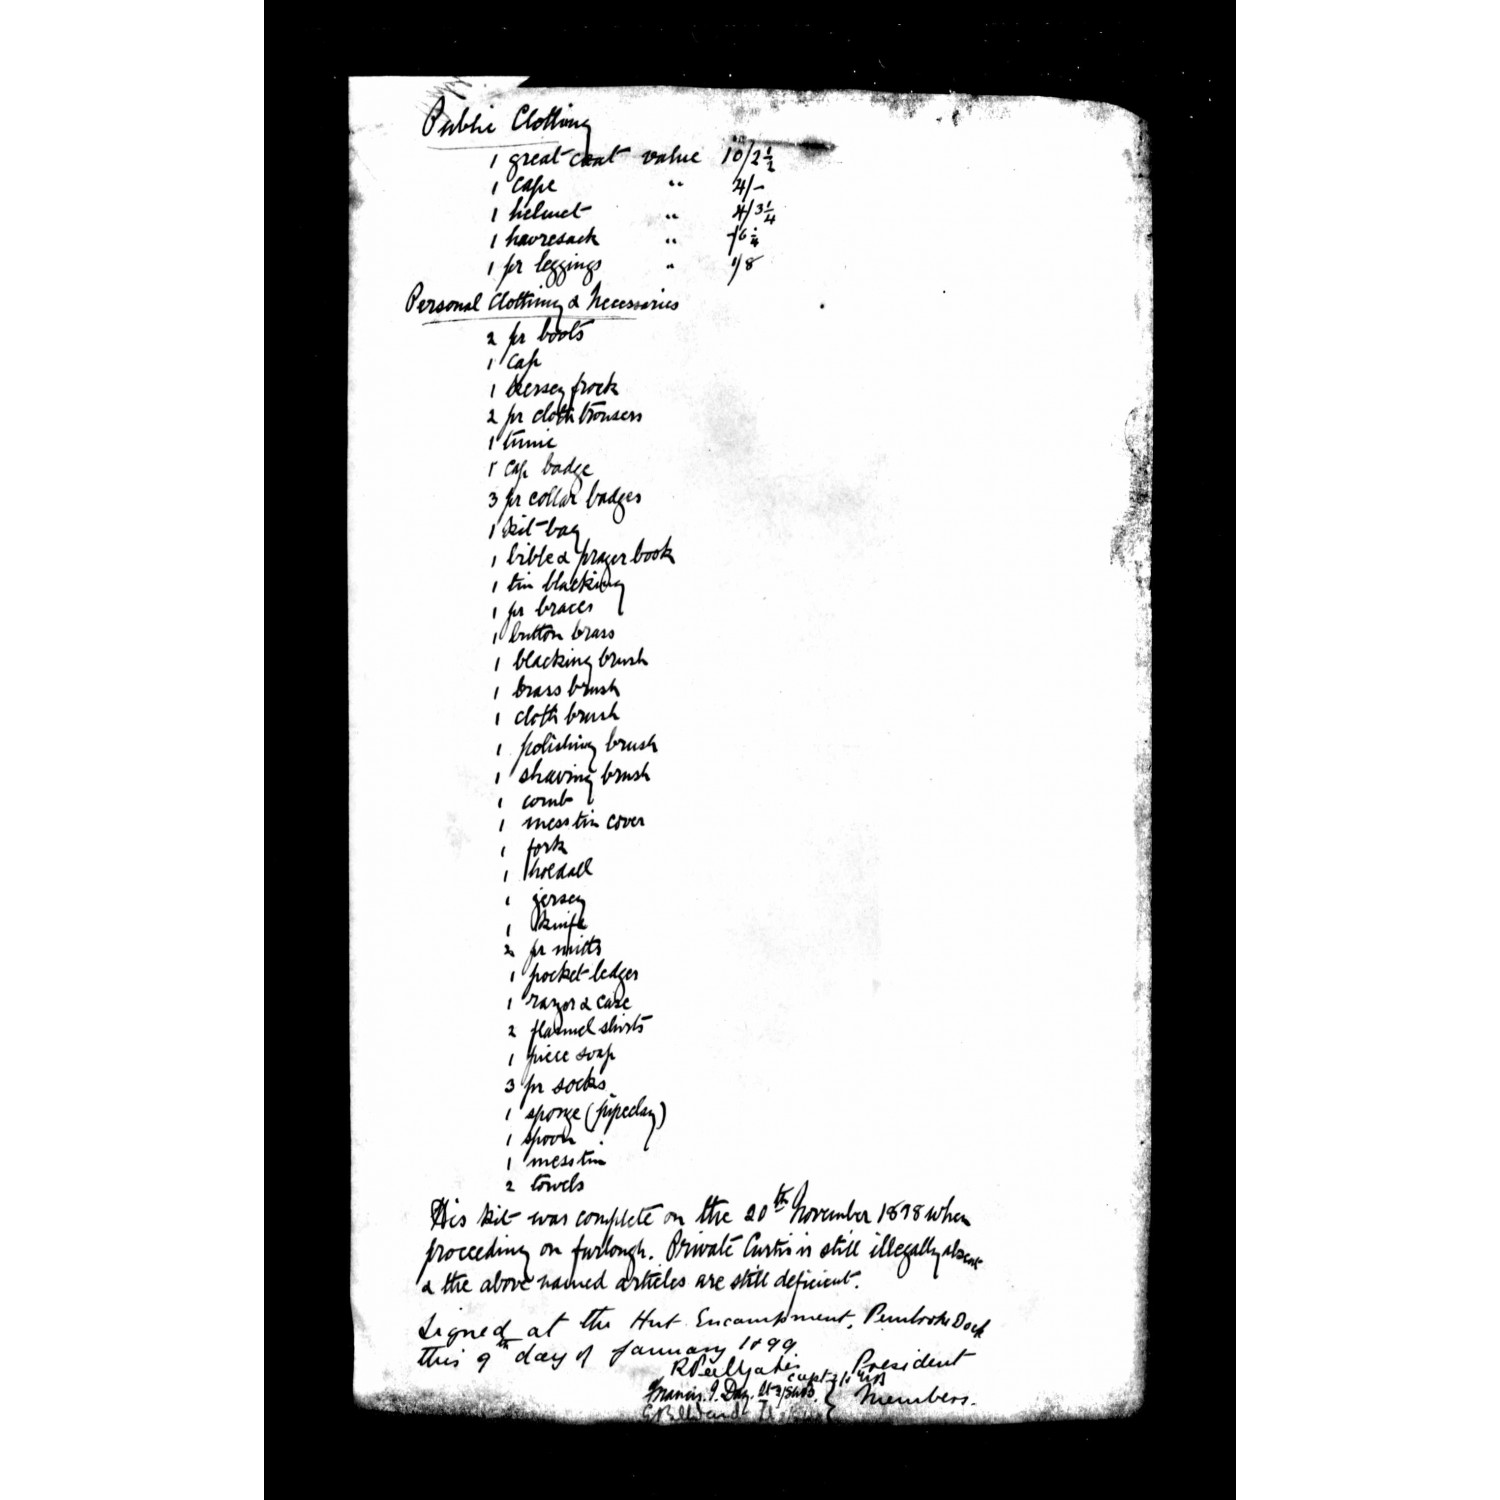 Public Clothing
1 great coat value 10/2½
1 cape " 4/-
1 helmet " 4/3¼
1 havresack " -/6¼
1 pr leggings " 1/8
Personal Clothing & Necessaries
2 pr boots
1 cap
1 kersey frock
2 pr cloth trousers
1 tunic
1 cap badge
3 pr collar badges
1 kit bag
1 bible & prayer book
1 tin blacking
1 pr braces
1 button brass
1 blacking brush
1 brass brush
1 cloth brush
1 polishing brush
1 shaving brush
1 comb
1 mess tin cover
1 fork
1 holdall
1 jersey
1 knife
2 pr mitts
1 pocket ledger
1 razor & case
2 flannel shirts
1 piece soap
3 pr socks
1 sponge (pipeclay)
1 spoon
1 mess tin
2 towels
His kit was complete on the 20th November 1898 when
proceeding on furlough. Private Curtis is still illegally absent
& the above named articles are still deficient.
Signed at the Hut Encampment, Pembroke Dock
this 9th day of January 1899
President
Francis. J. Day. Lt
Members.